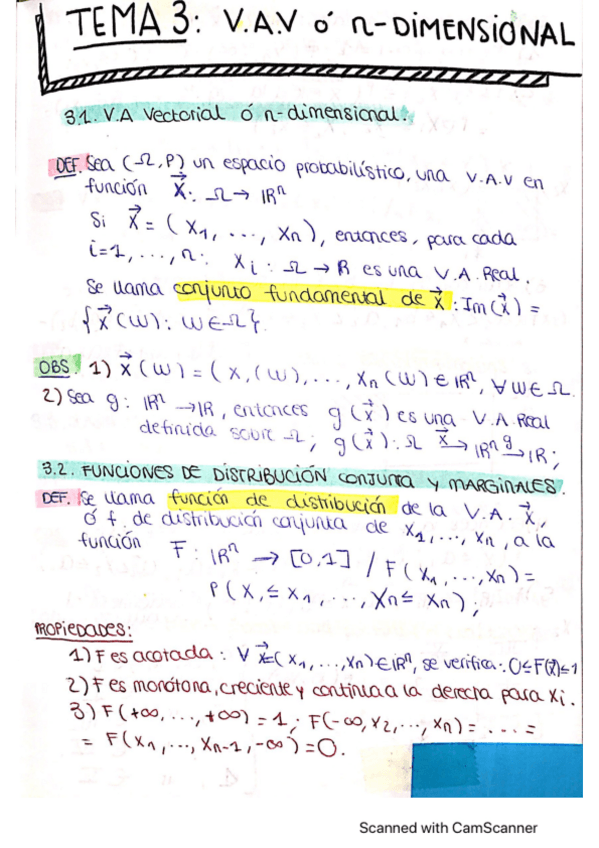 TEMA 3: V.A.V ó n-DIMENSIONAL
3.1. V.A Vectorial ó n-dimensional.
DEF. Sea (Ω,P) un espacio probabilístico, una V.A.V en
función X⃗: Ω → IRⁿ
Si X⃗ = (X₁, ..., Xn), entonces, para cada
i=1, ..., n: Xi: Ω → R es una V.A. Real.
Se llama conjunto fundamental de X⃗: Im(X⃗) =
{X⃗(W): W∈Ω}.
OBS. 1) X⃗(W) = (X₁(W), ..., Xn(W)) ∈ IRⁿ, ∀ W∈Ω.
2) Sea g: IRⁿ → IR, entonces g(X⃗) es una V.A. Real
definida sobre Ω; g(X⃗): Ω X⃗→ IRⁿ g→ IR;
3.2. FUNCIONES DE DISTRIBUCIÓN CONJUNTA Y MARGINALES.
DEF. Se llama función de distribución de la V.A. X⃗,
ó f. de distribución conjunta de X₁, ..., Xn, a la
función F: IRⁿ → [0,1] / F(X₁, ..., Xn) =
P(X₁ ≤ x₁, ..., Xn ≤ Xn);
PROPIEDADES:
1) F es acotada: ∀ X⃗=(X₁, ..., Xn)∈IRⁿ, se verifica: 0≤F(X⃗)≤1
2) F es monótona, creciente y continua a la derecha para Xi.
3) F(+∞, ..., +∞) = 1; F(-∞, X₂, ..., Xn) = ... =
= F(X₁, ..., Xn-1, -∞) = 0.
Scanned with CamScanner